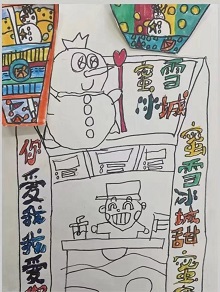 蜜雪
冰城
你爱我我爱
蜜雪冰城甜蜜